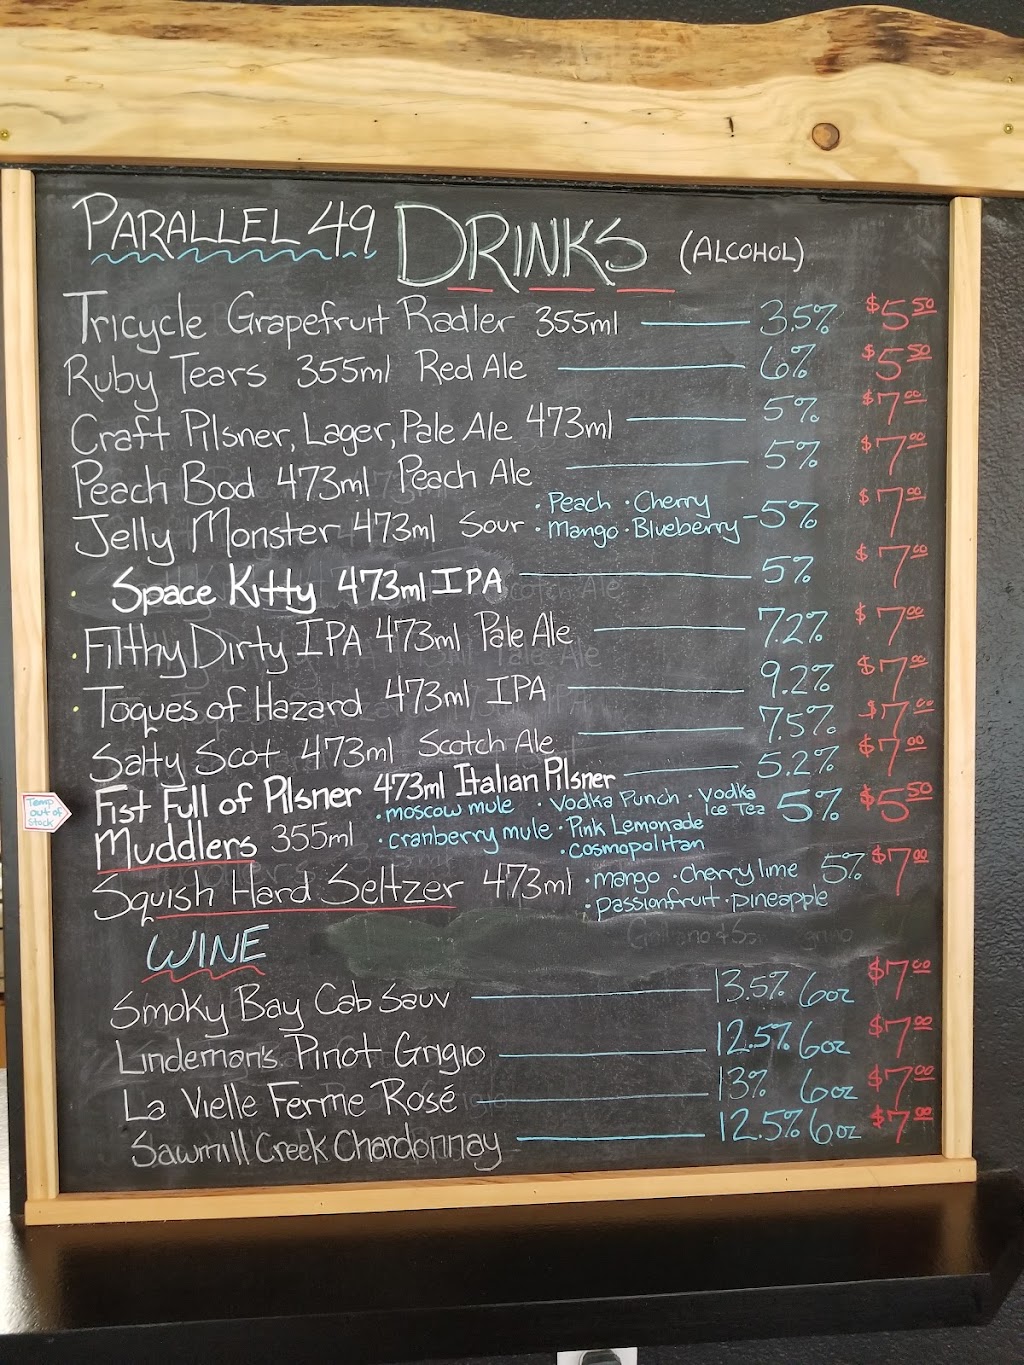 PARALLEL 49 DRINKS (ALCOHOL)
Tricycle Grapefruit Radler 355ml 3.5% $5.50
Ruby Tears 355ml Red Ale 6% $5.50
Craft Pilsner, Lager, Pale Ale 473ml 5% $7.00
Peach Bod 473ml Peach Ale 5% $7.00
Jelly Monster 473ml Sour · Peach · Cherry · Mango · Blueberry 5% $7.00
· Space Kitty 473ml IPA 5% $7.00
· Filthy Dirty IPA 473ml Pale Ale 7.2% $7.00
· Toques of Hazard 473ml IPA 9.2% $7.00
Salty Scot 473ml Scotch Ale 7.5% $7.00
Fist Full of Pilsner 473ml Italian Pilsner 5.2% $7.00
Temp out of Stock
Muddlers 355ml · moscow mule · Vodka Punch · Vodka Ice Tea · cranberry mule · Pink Lemonade · cosmopolitan 5% $5.50
Squish Hard Seltzer 473ml · mango · cherry lime · passionfruit · pineapple 5% $7.00
WINE
Smoky Bay Cab Sauv 13.5% 6oz $7.00
Lindeman's Pinot Grigio 12.5% 6oz $7.00
La Vielle Ferme Rosé 13% 6oz $7.00
Sawmill Creek Chardonnay 12.5% 6oz $7.00